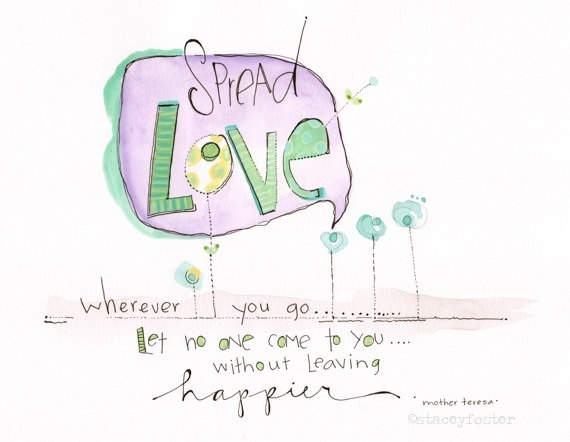 Spread
Love
wherever you go............
Let no one come to you....
without leaving
happier
. mother teresa.
©staceyfoster